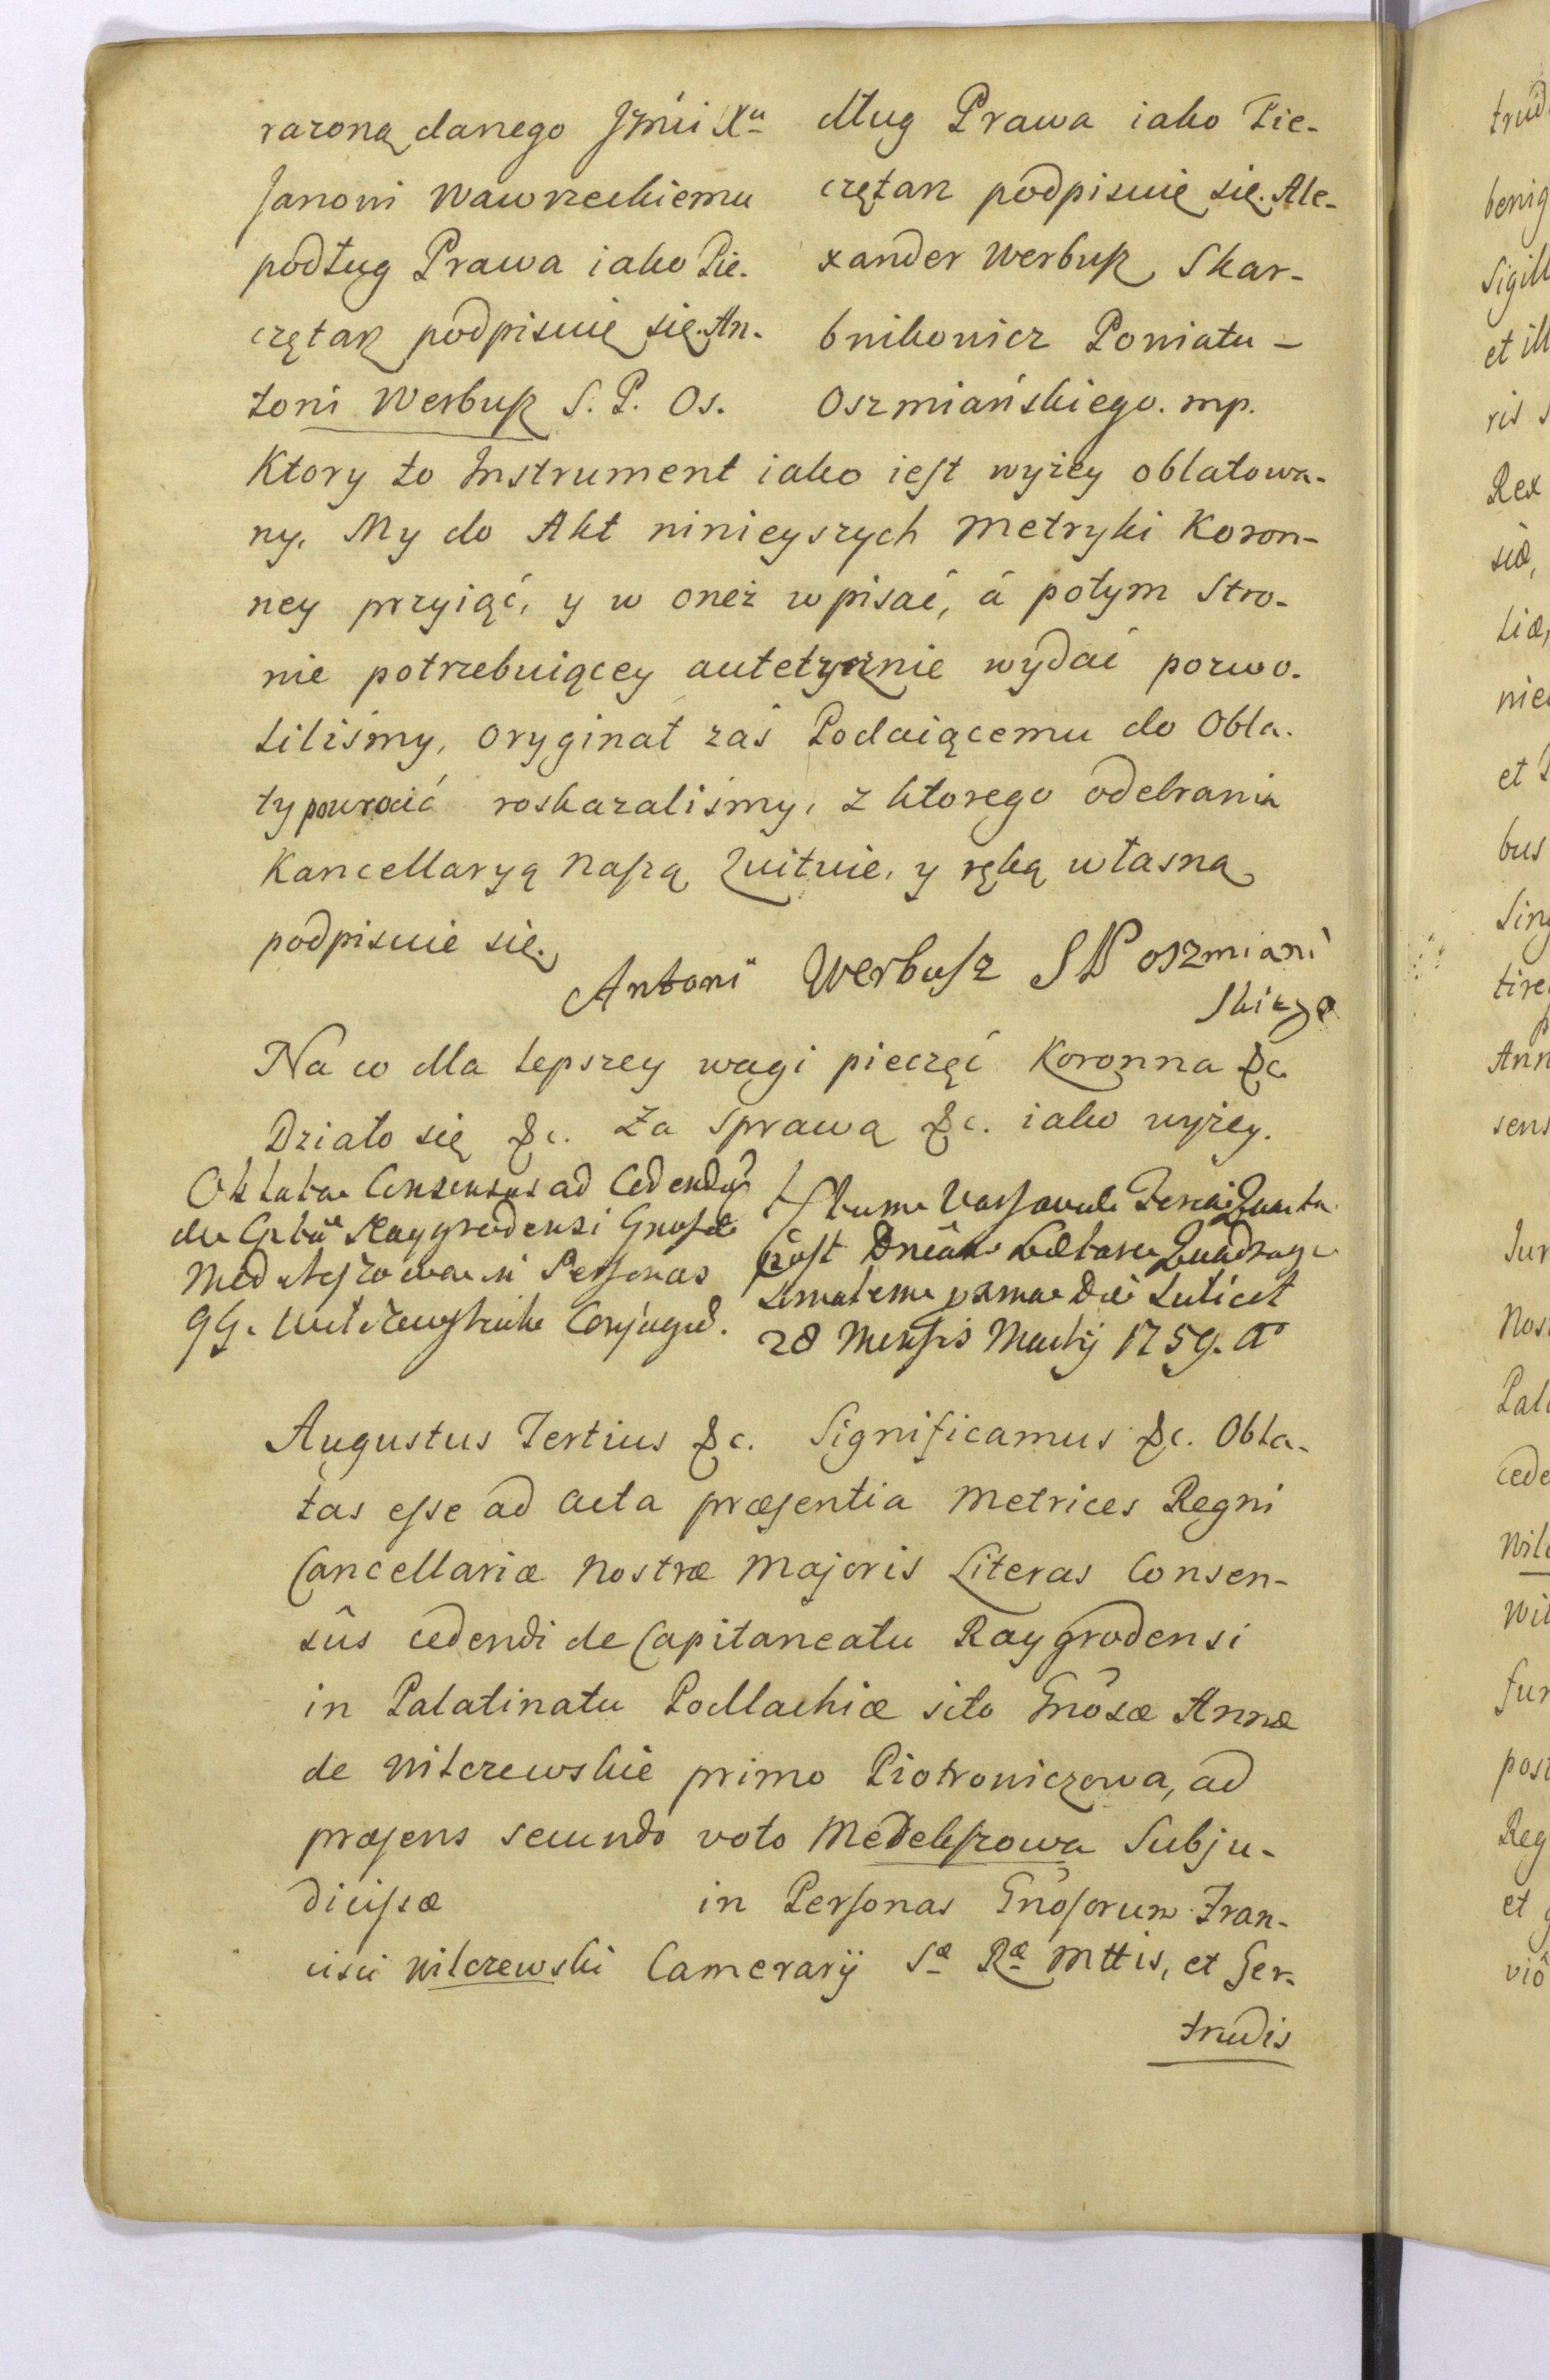 razoną danego Jmći Xu
Janowi Wawrzeckiemu
podług Prawa iako Pie-
czętarz podpisuię się. An-
toni Werbusz S. P. Os.
dług Prawa iako Pie-
czętarz podpisuię się. Ale-
xander Werbusz Skar-
bnikowicz Poniatu-
Oszmiańskiego. mp.
Ktory to Instrument iako iest wyżey oblatowa-
ny. My do Akt ninieyszych Metryki Koron-
ney przyiąć, y w oneż wpisać, á potym Stro-
nie potrzebuiącey autetycznie wydać pozwo-
liliśmy, oryginał zaś Podaiącemu do Obla-
ty powrocić roskazaliśmy, z ktorego odebrania
Kancellaryą naszą Quituie, y ręką własną
podpisuie się.
Antoni Werbusz SP oszmiań
skiego
Na co dla lepszey wagi pieczęć Koronna &c.
Działo się &c. Za sprawą &c. iako wyżey.
Oblata Consensus ad cedendum
de Raygrodensi
in Personas
GG. Wilczewskich Conjugum.
Actum Varsaviæ Feria Quarta
post Dnicam Lætare Quadrage-
simalem Die Scilicet
28 Mensis Martij 1759. Ao
Augustus Tertius &c. Significamus &c. Obla-
tas esse ad Acta præsentia Metrices Regni
Cancellariæ Nostræ Majoris Literas Consen-
sûs cedendi de Capitaneatu Raygrodensi
in Palatinatu Podlachiæ sito Gnosæ Annæ
de Wilczewskie primo Piotrowiczowa, ad
præsens secundo voto Medekszowa Subju-
dicissæ in Personas Gnosorum Fran-
cisci Wilczewski Camerarij Sæ Ræ Mttis, et Ger-
trudis
trud
benig
Sigill
et ill
ris s
Rex
siæ,
liæ,
nie
et
bus
Sing
tire
Ann
sens
Jur
Nos
Pala
cede
Wil
Wil
fur
pos
Reg
et
vio